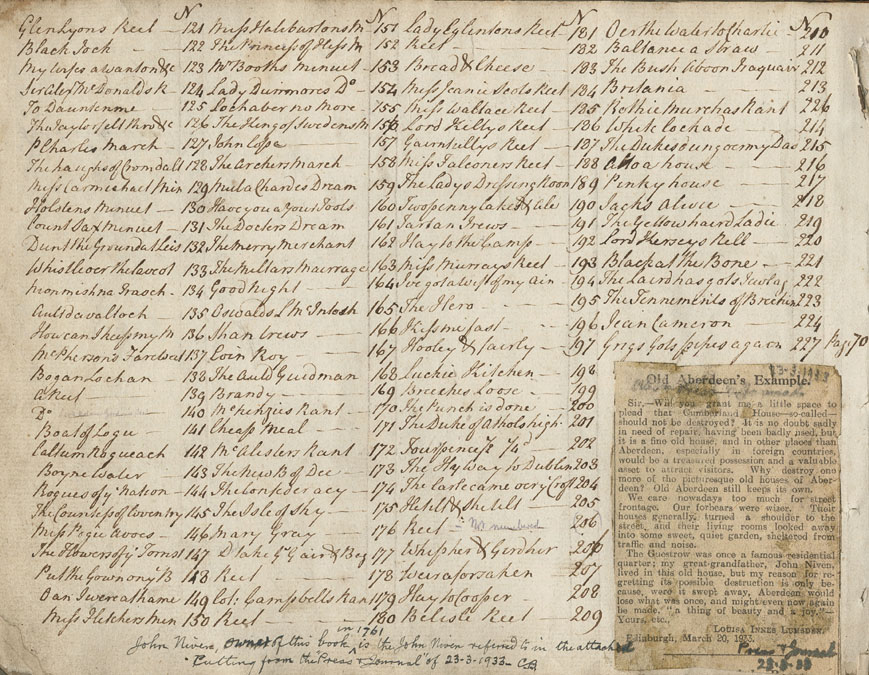 N
Glenlyons Reel — 121
Black Jock — 122
My wifes a wanton &c 123
Sir Alexr McDonalds R — 124
To Dauntenme — 125
The Taylor fell thro &c 126
P Charles March — 127
The haughs of Cromdall 128
Miss Carmichael Min 129
Holstens Minuet — 130
Count Sax Minuet — 131
Dunt the Ground at Leis 132
Whistle over the lave ot 133
134
Auldavalloch — 135
How can I keep my M 136
McPhersons Farewal 137
Bogan Lochan — 138
A Reel — 139
Do — 140
Boat of Logie — 141
Callum Rogueach — 142
Boyne Water — 143
Rogues of ye Nation — 144
The Countess of Coventry 145
Miss Pegie Avoes — 146
The Flowers of ye Forrest 147
Put the Gown on ye B 148
Oan I were at hame 149
Miss Fletchers Men 150
N
Miss Haleburtons M 151
The Princess of Hess M 152
Mr Booths minuet — 153
Lady Dunmores Do — 154
Lochaber no More — 155
The King of Swedens M 156
John Copa — 157
The Archers March 158
Mula Chardes Dream 159
Have you a Your Tools 160
The Docters Dream 161
The merry merchant 162
The Millars Maerrage 163
Good Night — 164
Oswalds L McIntosh 165
Shan trews — 166
Evin Roy — 167
The Auld Guidman 168
Brandy — 169
McKenzies Rant 170
Cheap Meal — 171
McAlesters Rant 172
The New B of Dee — 173
The Confederacy — 174
The Isle of Sky — 175
Mary Gray — 176
177
Reel — 178
Col: Campbells Ran 179
Reel — 180
N
Lady Eglentons Reel 181
Reel — 182
Bread & Cheese — 183
Miss Jeanie Scots Reel 184
Miss Wallace Reel — 185
Lord Kellys Reel — 186
Gairntullys Reel — 187
Miss Falconers Reel — 188
The Ladys Dressing Room 189
Twopenny Cakes & Ale 190
Tartan Trews — 191
Hay to the Camp — 192
Miss Murrays Reel — 193
Ive got a wife of my Ain — 194
The Hero — 195
Kiss me fast — 196
Hooley & fairly — 197
Luckie Kitchen — 198
Breeches Loose — 199
The Punch is done — 200
The Duke of Athols high 201
Fourpence 1/4d — 202
The Hy Way to Dublin 203
The Carle came over ye Croft 204
Hekelt & Shekelt — 205
Reel — Not numbered 206
Whisper & Gerdher 206
Weirs forsaken — 207
Hay to Cooper — 208
Belisle Reel — 209
N
Oer the Water to Charlie — 210
Baltancia Straw — 211
The Bush Aboon Traquair 212
Britania — 213
Rothie Murchas Rant 226
White Cockade — 214
The Dukes dung oer my Dad 215
Alloa house — 216
Penky house — 217
Jacks Alive — 218
The Yellow haird Ladie 219
Lord Kerseys Rell — 220
Black at the Bone — 221
222
The Tennements of Brechin 223
Jean Cameron — 224
Grigs Gots pipes again — 227 Page 70
23-3-1933
Old Aberdeen's Example.
Sir,—Will you grant me a little space to
plead that Cumberland House—so-called—
should not be destroyed? It is no doubt sadly
in need of repair, having been badly used, but
it is a fine old house, and in other places than
Aberdeen, especially in foreign countries,
would be a treasured possession and a valuable
asset to attract visitors. Why destroy one
more of the picturesque old houses of Aber-
deen? Old Aberdeen still keeps its own.
We care nowadays too much for street
frontage. Our forbears were wiser. Their
houses generally, turned a shoulder to the
street, and their living rooms looked away
into some sweet, quiet garden, sheltered from
traffic and noise.
The Guestrow was once a famous residential
quarter; my great-grandfather, John Niven,
lived in this old house, but my reason for re-
gretting its possible destruction is only be-
cause, were it swept away, Aberdeen would
lose what once, and might even now again
be made "a thing of beauty and a joy."—
Yours, etc.,
LOUISA INNES LUMSDEN.
Edinburgh, March 20, 1933.
Press & Journal
23-3-33
in 1761
John Niven, owner of this book is the John Niven referred to in the attached
"Cutting from the "Press & Journal" of 23-3-1933— C.B.